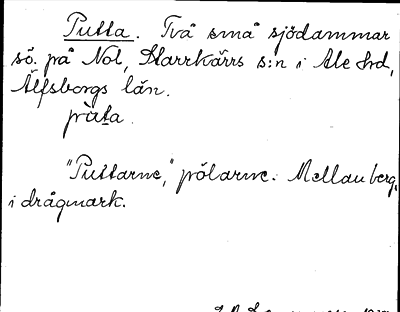 Putta. Två små sjödammar
sö. på Nol, Starrkärrs s:n i Ale hrd,
Älfsborgs län.
pùta.
"Puttarne," pölarne. Mellan berg,
i drågmark.